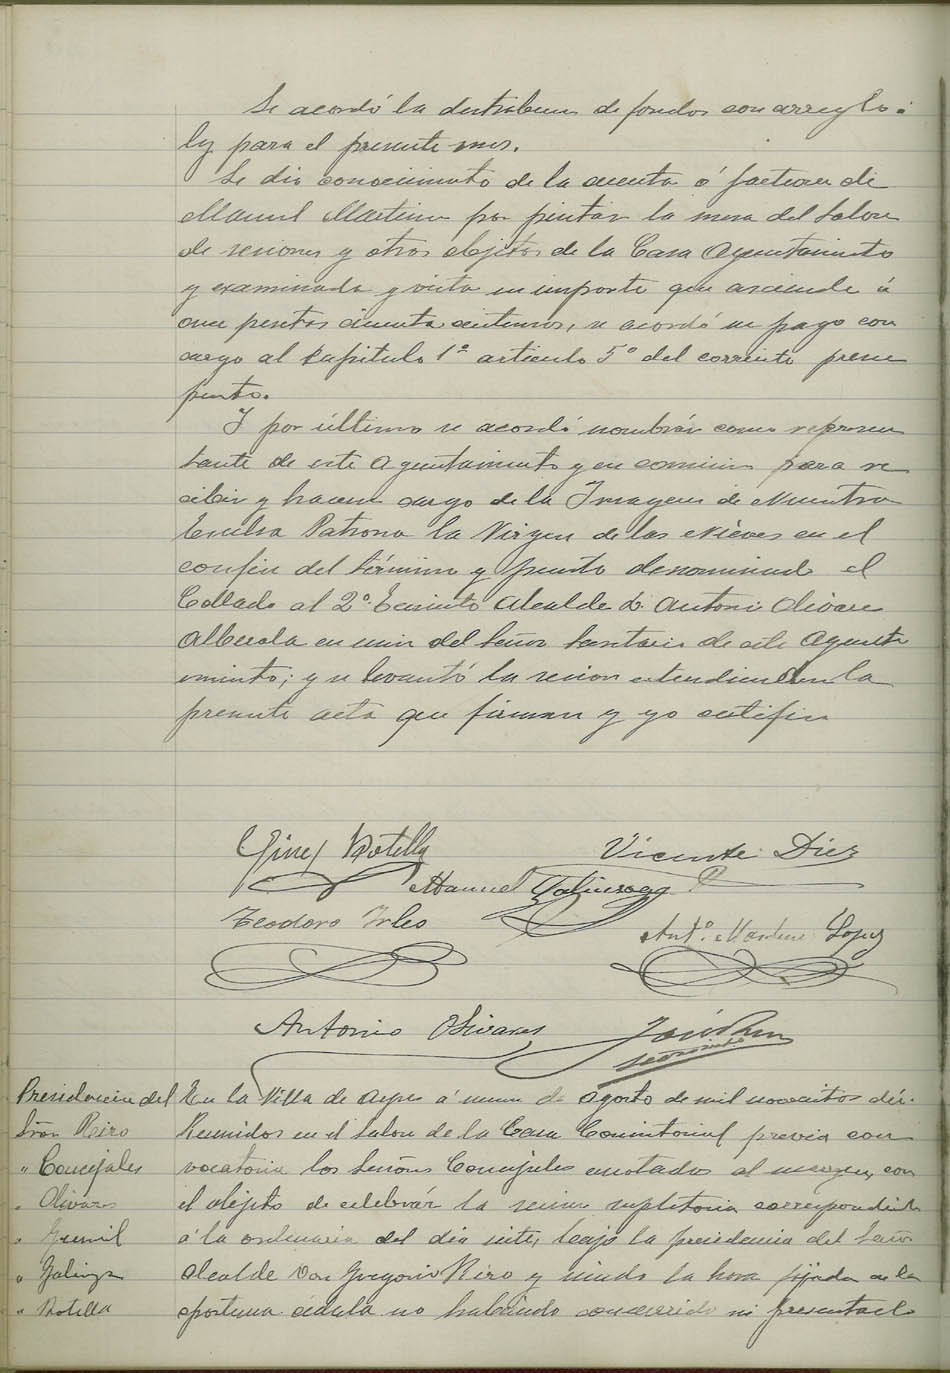 Se acordó la distribucion de fondos con arreglo á
ley para el presente mes.
Se dió conocimiento de la cuenta ó factura de
Manuel Martinez por pintar la mesa del Salon
de sesiones y otros objetos de la Casa Ayuntamiento
y examinada y vista su importe que asciende á
once pesetas cincuenta centimos, se acordó su pago con
cargo al Capitulo 1º articulo 5º del corriente presu
puesto.
Y por último se acordó nombrár como represen
tante de este Ayuntamiento y en comision para re
cibir y hacerse cargo de la Imagen de Nuestra
Excelsa Patrona la Virgen de las Nieves en el
confin del término y punto denominado el
Collado al 2º Teniente Alcalde D. Antonio Olivares
Alberola en union del Señor Secretario de este Ayunta
miento; y se levantó la sesion extendiendose la
presente acta que firman y yo certifico
Gines Botella
Vicente Diez
Manuel Galinsoga
Teodoro Irles
Antº Martinez Lopez
Antonio Olivares
José
Secretario
Presidencia del
Sr̃or Riso
" Concejales
" Olivares
" Gumil
" Galinsga
" Botella
En la Villa de Aspe á nueve de Agosto de mil novecientos diez.
Reunidos en el Salon de la Casa Consistorial previa con
vocatoria los Señores Concejales anotados al margen, con
el objeto de celebrár la sesion supletoria correspondiente
á la ordinaria del dia siete, bajo la presidencia del Señor
Alcalde Don Gregorio Riso y siendo la hora fijada en la
oportuna cédula no habiendo concurrido ni presentado